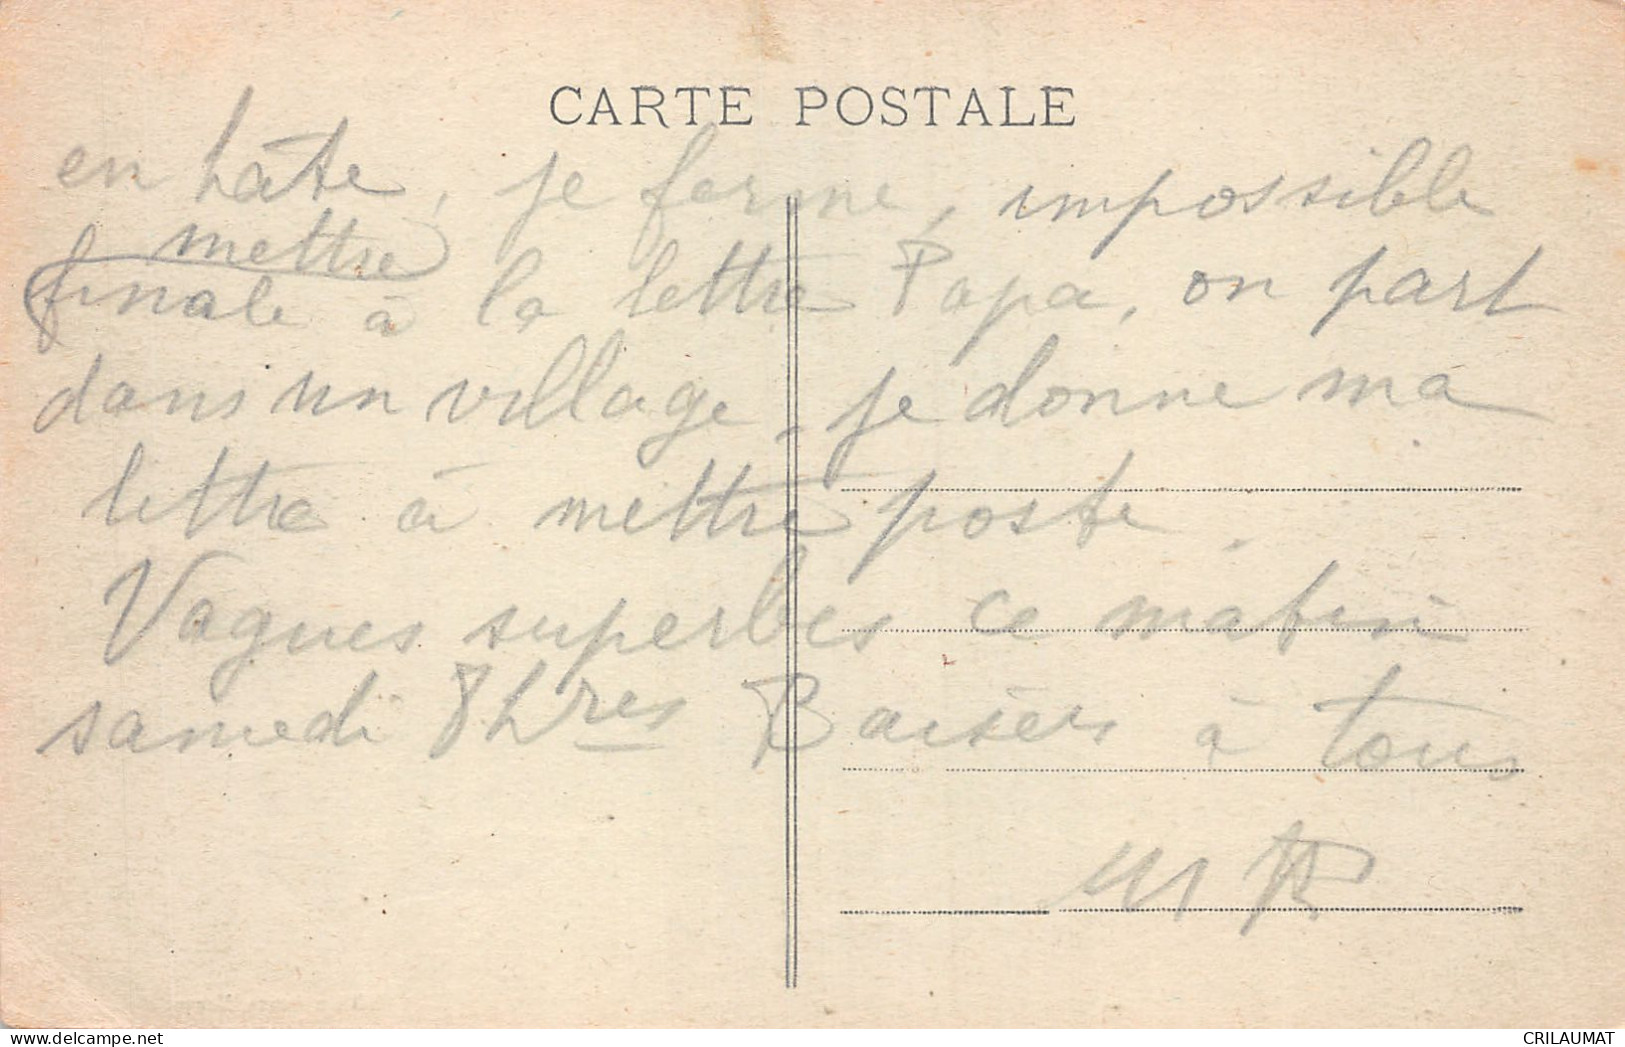 CARTE POSTALE
en hâte, je ferme, impossible
mettre
finale à la lettre Papa, on part
dans un village, je donne ma
lettre à mettre poste.
Vagues superbes ce matin
samedi 8hres Baisers à tous
CRILAUMAT